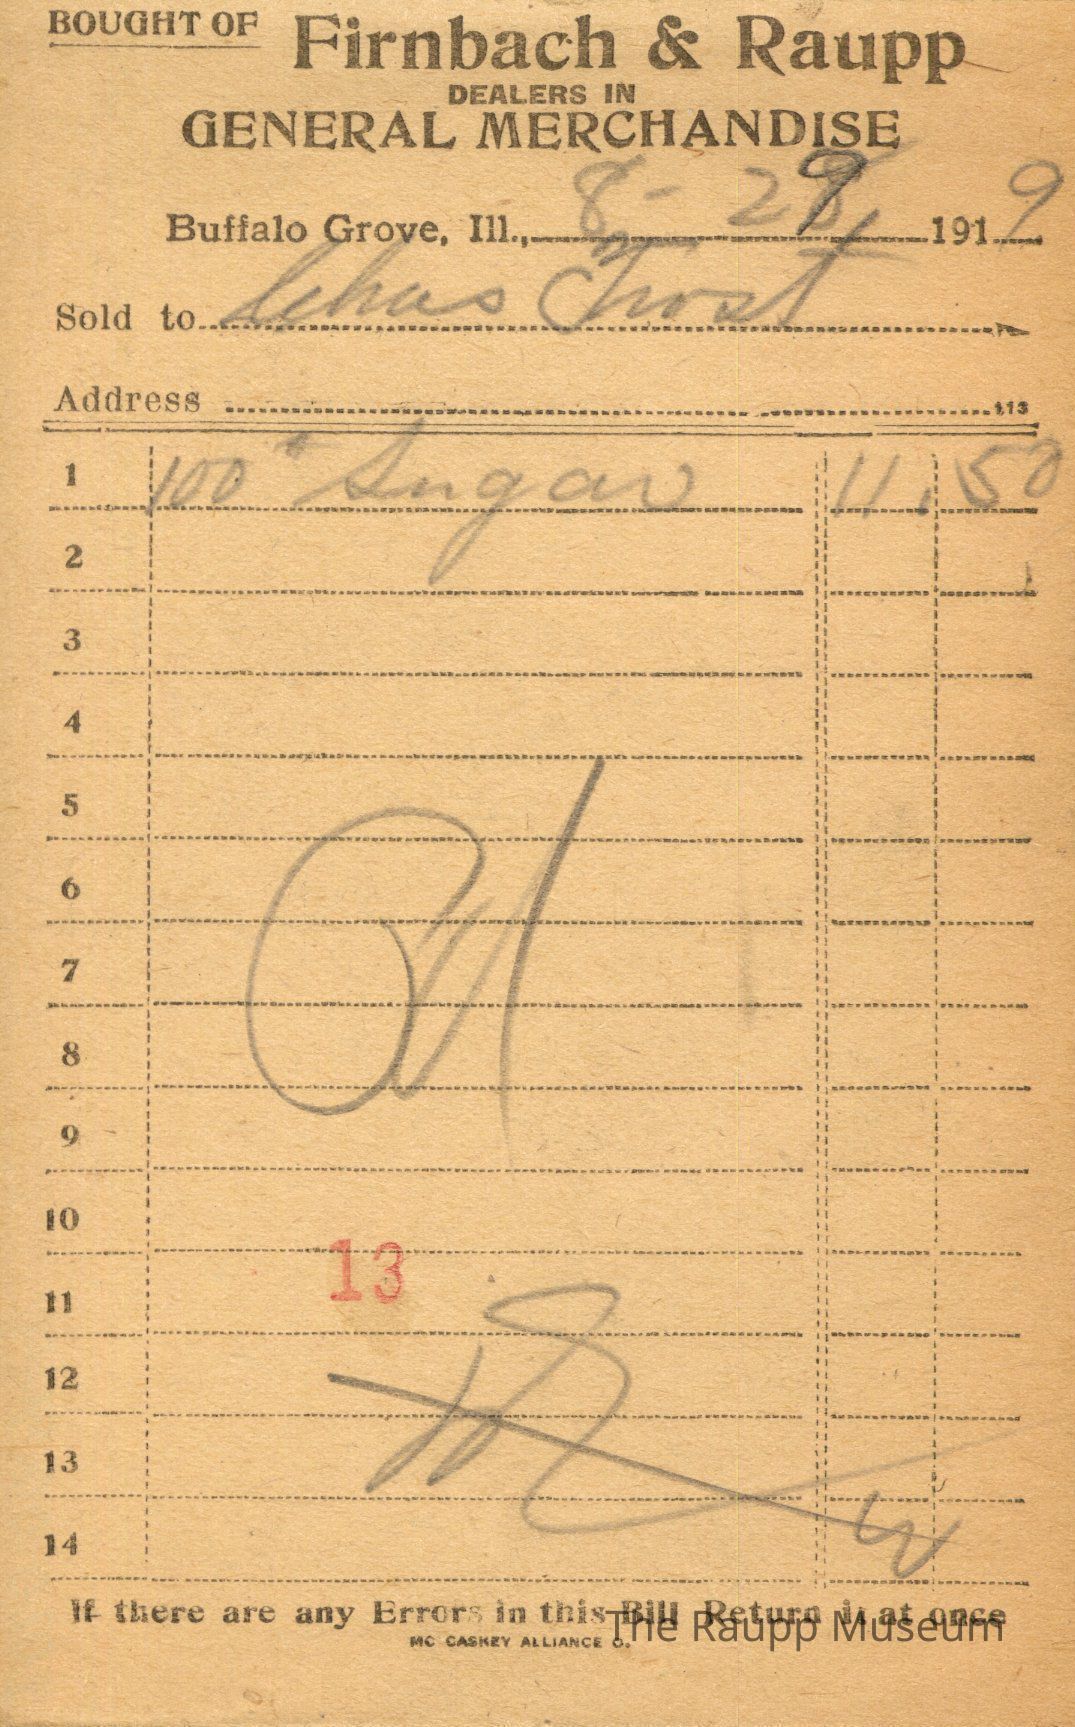 BOUGHT OF Firnbach & Raupp
DEALERS IN
GENERAL MERCHANDISE
Buffalo Grove, Ill., 8- 29 1919
Sold to Chas Trost
Address 113
1 100# Sugar 11.50
2
3
4
5
6
7
8
9
10
13
11
12
13
14
If there are any Errors in this Bill Return it at once
MC CASKEY ALLIANCE O.
The Raupp Museum